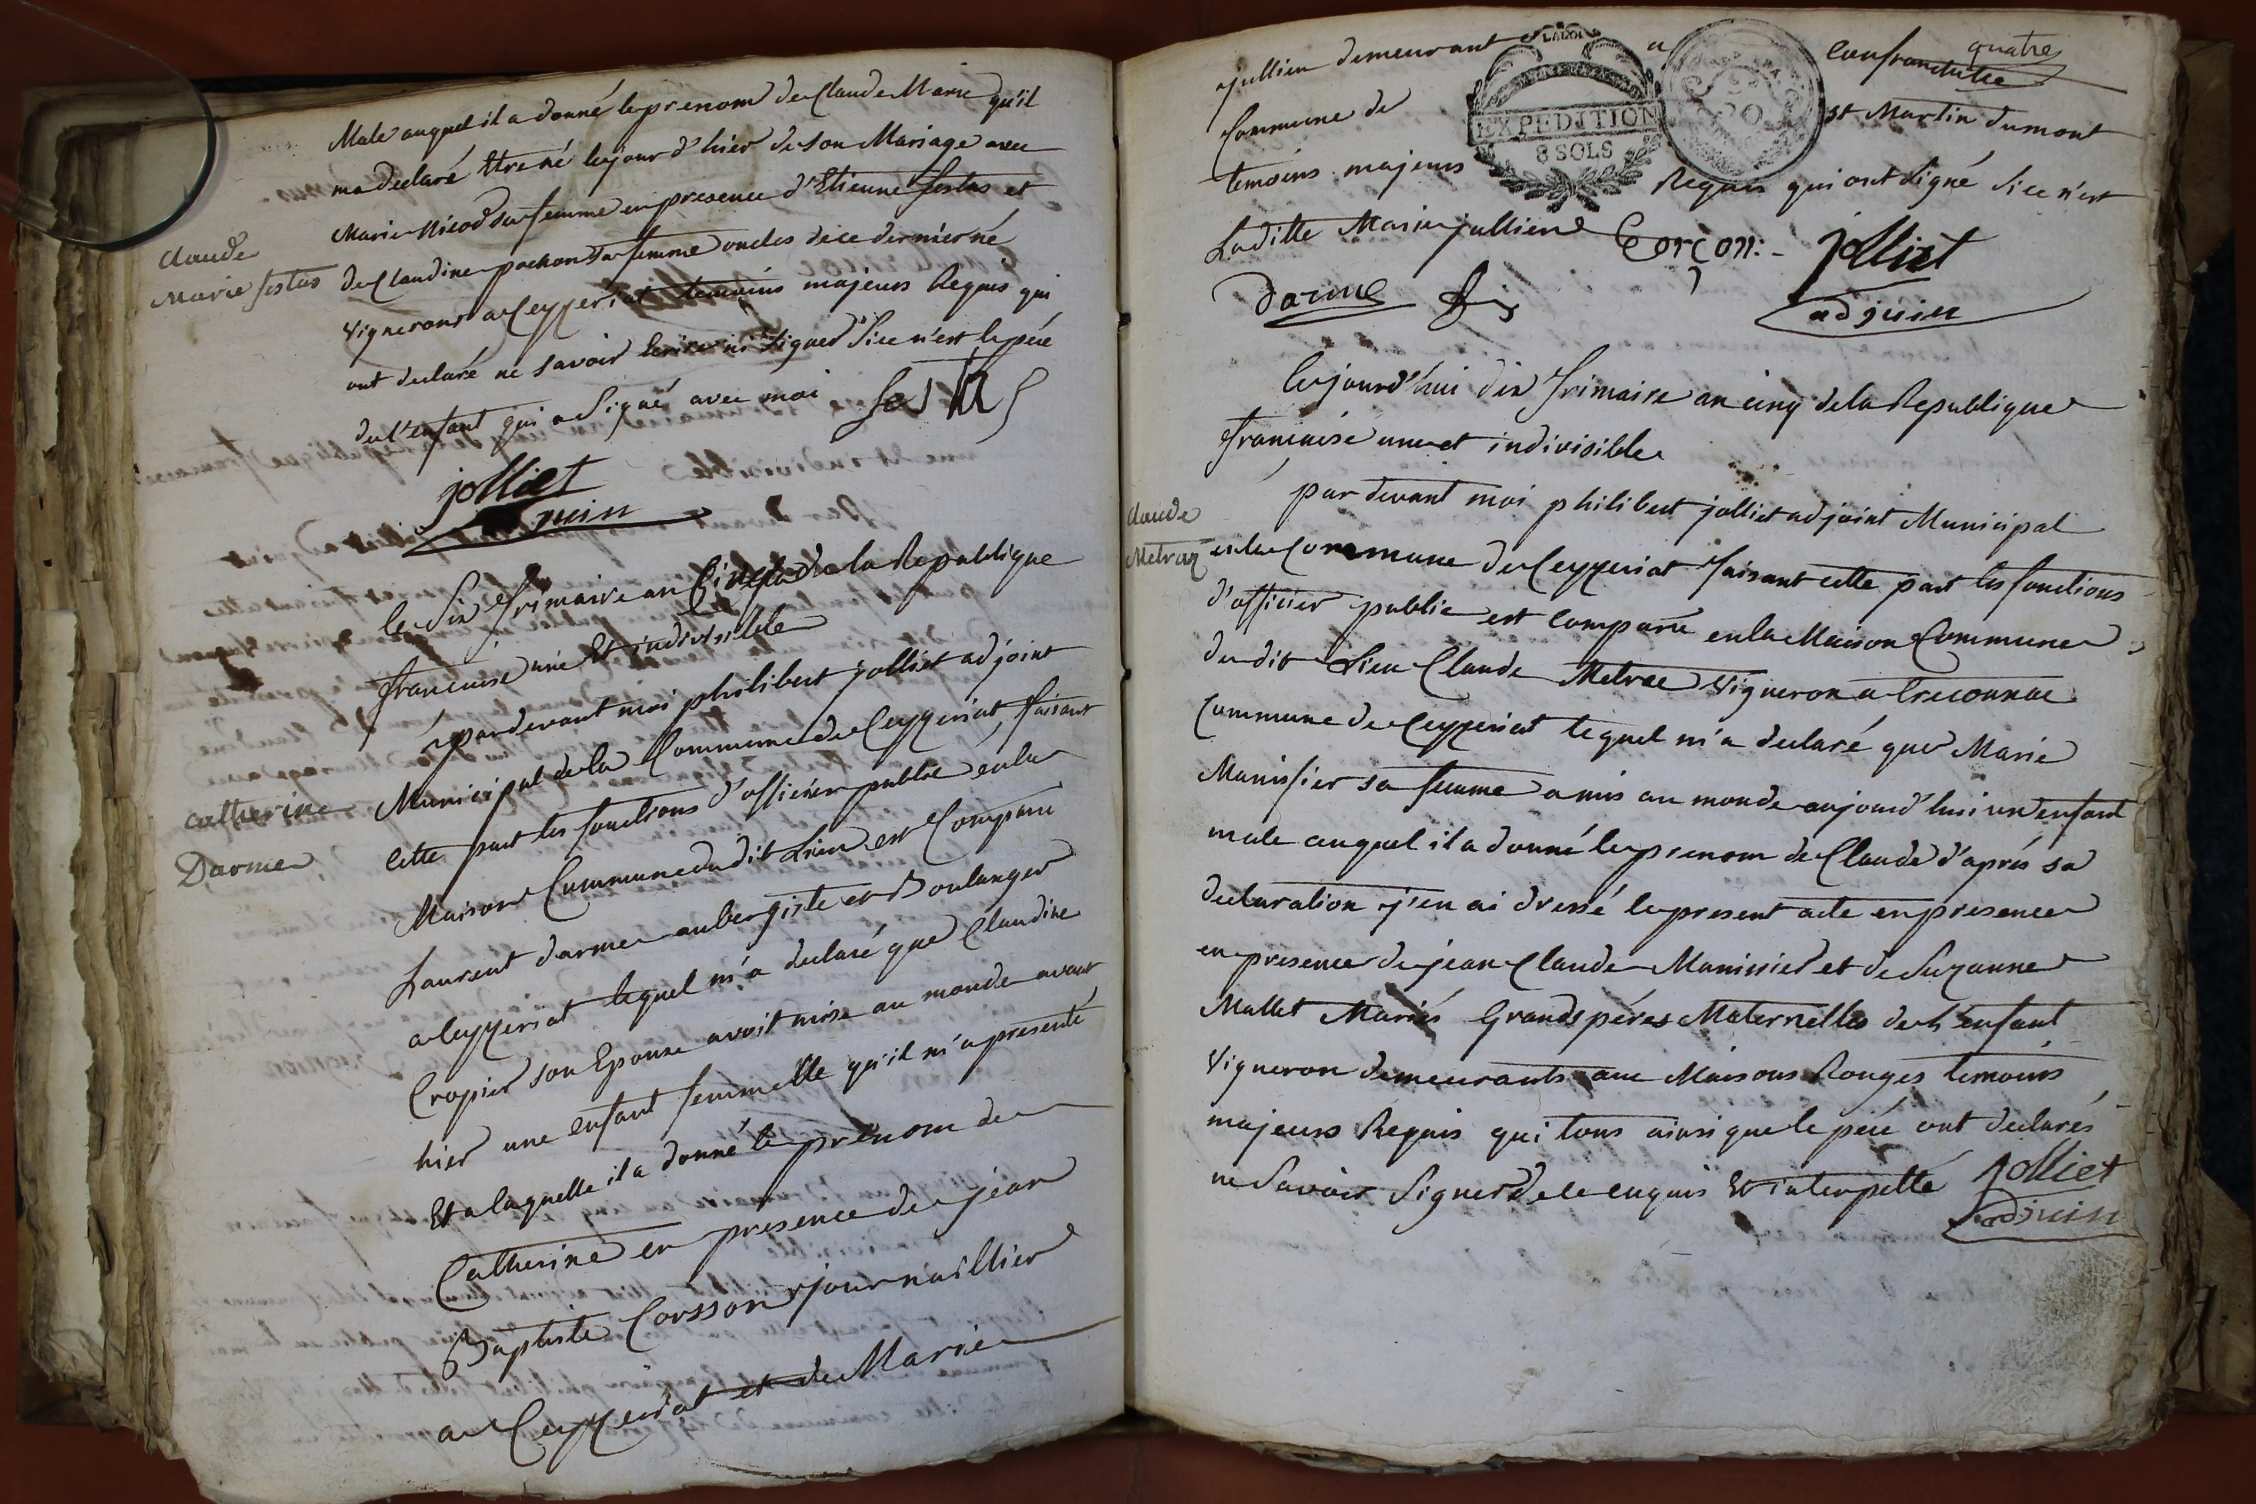 Male auquel il a donné le prenom de Claude Marie qu'il
ma declaré être né le jour d'hier de son Mariage avec
Marie Nicod sa femme en presence d'Etienne festas et
Claude
Marie festas
de Claudine pochon sa femme oncles de ce dernier né
vignerons a Ceyzeriat temoins majeurs Requis qui
ont declaré ne savoir Ecrire ni Signer Si ce n'est le pére
de l'enfant qui a Signé avec moi festas
jolliet
le Six frimaire an Cinq de la Republique
francaise une Et indivisible
pardevant moi philibert jolliet adjoint
Municipal de la Commune de Ceyzeriat, faisant
Catherine
Darme
cette part les fonctions d'officier public en la
Maison Commune du dit Lieu est Comparu
Laurent darme aubergiste et Boulanger
a Ceyzeriat lequel m'a declaré que Claudine
Cropier son Epouse avoit mise au monde avant
hier une enfant femmelle qu'il m'a presenté
Et a laquelle il a donné le prenom de
Catherine en presence de jean
Baptiste Corsson journaillier
a Ceyzeriat et de Marie
quatre
jullien demeurant a Confranchette
Commune de St Martin dumont
LA LOI
EXPEDITION
8 SOLS
20
temoins majeurs Requis qui ont Signé Si ce n'est
Laditte Marie jullien Corçon jolliet
darme adjuin
Cejourd'hui dix frimaire an cinq de la Republique
francaise une et indivisible
par devant moi philibert jolliet adjoint Municipal
Claude
Metraz
en la Commune de Ceyzeriat faisant cette part les fonctions
d'officier public est comparu en la Maison Commune
du dit Lieu Claude Metraz vigneron a
Commune de Ceyzeriat lequel m'a declaré que Marie
Manissier sa femme a mis au monde aujourd'hui un enfant
male auquel il a donné le prenom de Claude d'aprés sa
declaration j'en ai dressé le present acte en presence
en presence de jean Claude Manissier et de Suzanne
Mallet Mariés Grands péres Maternelles de l'enfant
vigneron demeurants aux Maisons Rouges temoins
majeurs Requis qui tous ainsi que le pére ont declarés
ne Savoir Signer de ce enquis Et interpellé jolliet
adjuin